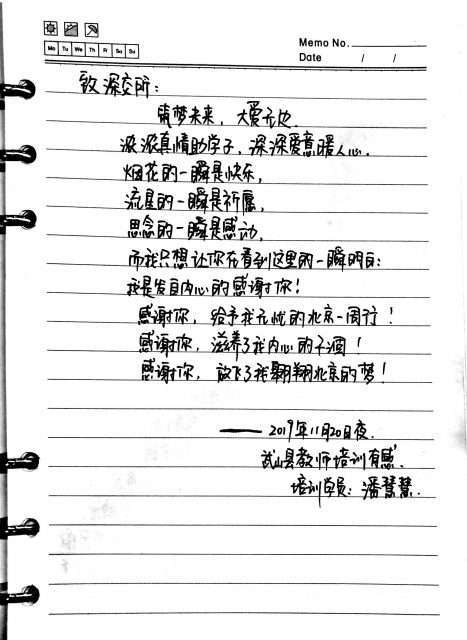 Memo No.
Mo Tu We Th Fr Sa Su
Date / /
致深交所：
筑梦未来，大爱无边.
浓浓真情助学子，深深爱意暖人心.
烟花的一瞬是快乐，
流星的一瞬是祈愿，
思念的一瞬是感动，
而我只想让你在看到这里的一瞬明白：
我是发自内心的感谢你！
感谢你，给予我无忧的北京一周行！
感谢你，滋养了我内心的干涸！
感谢你，放飞了我翱翔北京的梦！
—— 2019年11月20日夜.
武山县教师培训有感.
培训学员：潘慧慧.